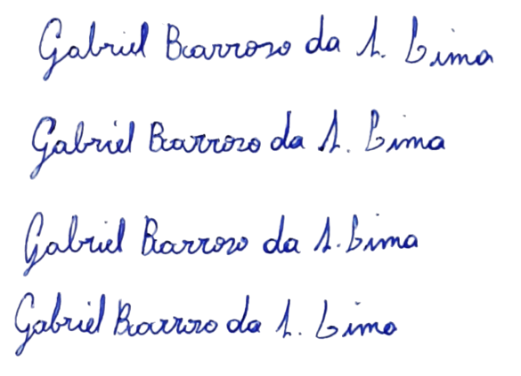 Gabriel Barroso da S. Lima
Gabriel Barrozo da S. Lima
Gabriel Barroso da S. Lima
Gabriel Barroso da S. Lima